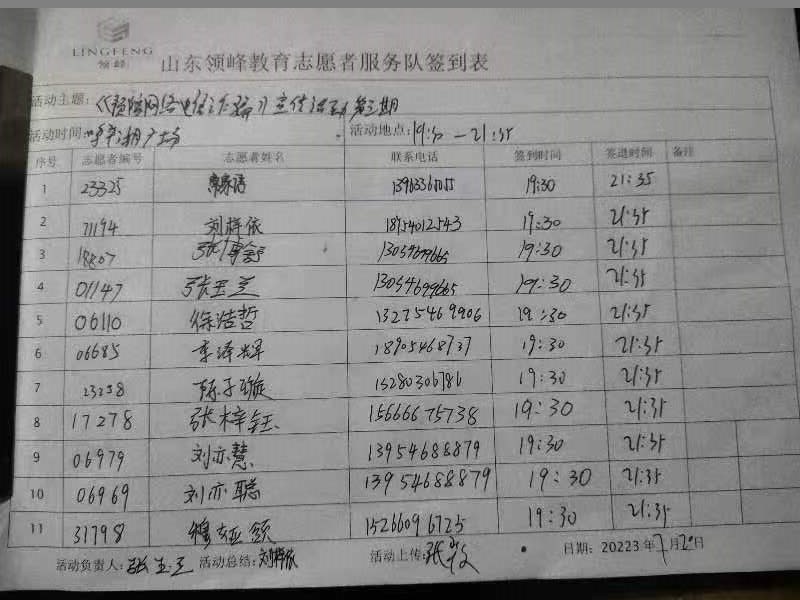 LINGFENG
领峰
山东领峰教育志愿者服务队签到表
活动主题：《预防网络电信诈骗》宣传活动 第三期
活动时间： 广场 活动地点：19:30 — 21:35
序号 志愿者编号 志愿者姓名 联系电话 签到时间 签退时间 备注
1 23325 19:30 21:35
2 71194 刘梓依 18954012543 19:30 21:35
3 18807 19:30 21:35
4 01147 张玉兰 13054699665 19:30 21:35
5 06110 徐浩哲 13275469906 19:30 21:35
6 06685 李泽辉 18905468737 19:30 21:35
7 子璇 15280306786 19:30 21:35
8 17278 张梓钰 15666675738 19:30 21:35
9 06979 刘亦慧 13954688879 19:30 21:35
10 06969 刘亦聪 13954688879 19:30 21:35
11 31798 15266096725 19:30 21:35
活动负责人： 活动总结：刘梓依 活动上传： 日期：20223年7月2日